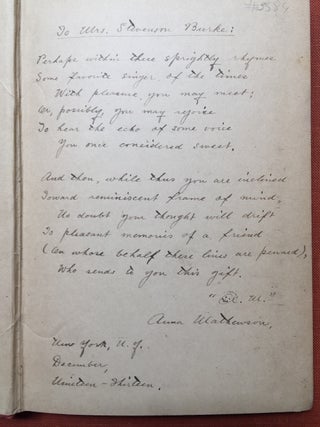 To Mrs. Stevenson Burke:
Perhaps within these sprightly rhymes
Some favorite singer of the times
With pleasure you may meet;
Or, possibly, you may rejoice
To hear the echo of some voice
You once considered sweet.
And then, while thus you are inclined
Toward reminiscent frame of mind,
No doubt your thought will drift
To pleasant memories of a friend
(On whose behalf these lines are penned),
Who sends to you this gift.
Anna Mathewson.
New York, N.Y.
December,
Nineteen-Thirteen.